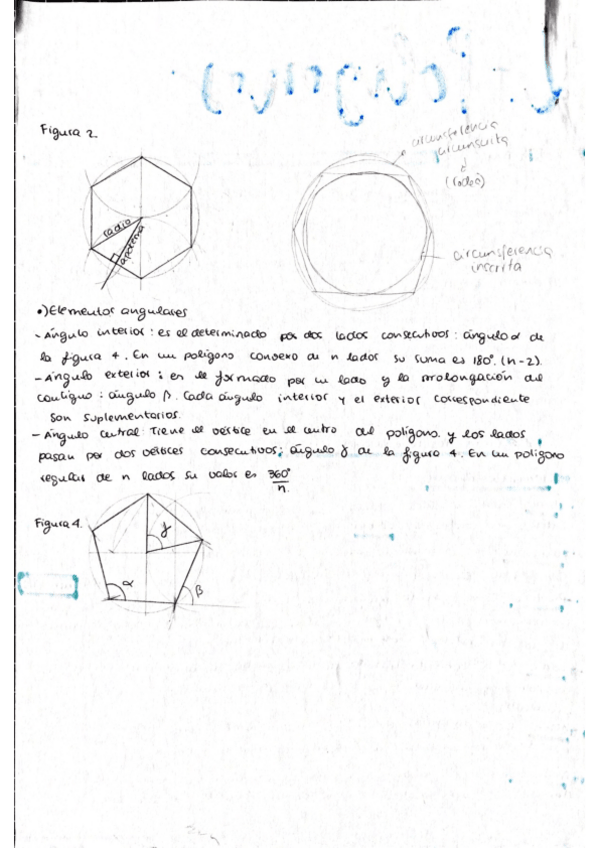 Figura 2.
circunsferencia
circunscrita
(rodea)
radio
apotema
circunsferencia
inscrita
•) Elementos angulares
- Ángulo interior: es el determinado por dos lados consecutivos: ángulo α de
la figura 4. En un polígono convexo de n lados su suma es 180º. (n-2).
- Ángulo exterior: es el formado por un lado y la prolongación del
contiguo: ángulo β. Cada ángulo interior y el exterior correspondiente
son suplementarios.
- Ángulo central: Tiene el vértice en el centro del polígono y los lados
pasan por dos vértices consecutivos; ángulo γ de la figura 4. En un polígono
regular de n lados su valor es 360º
n.
Figura 4.
γ
α
β